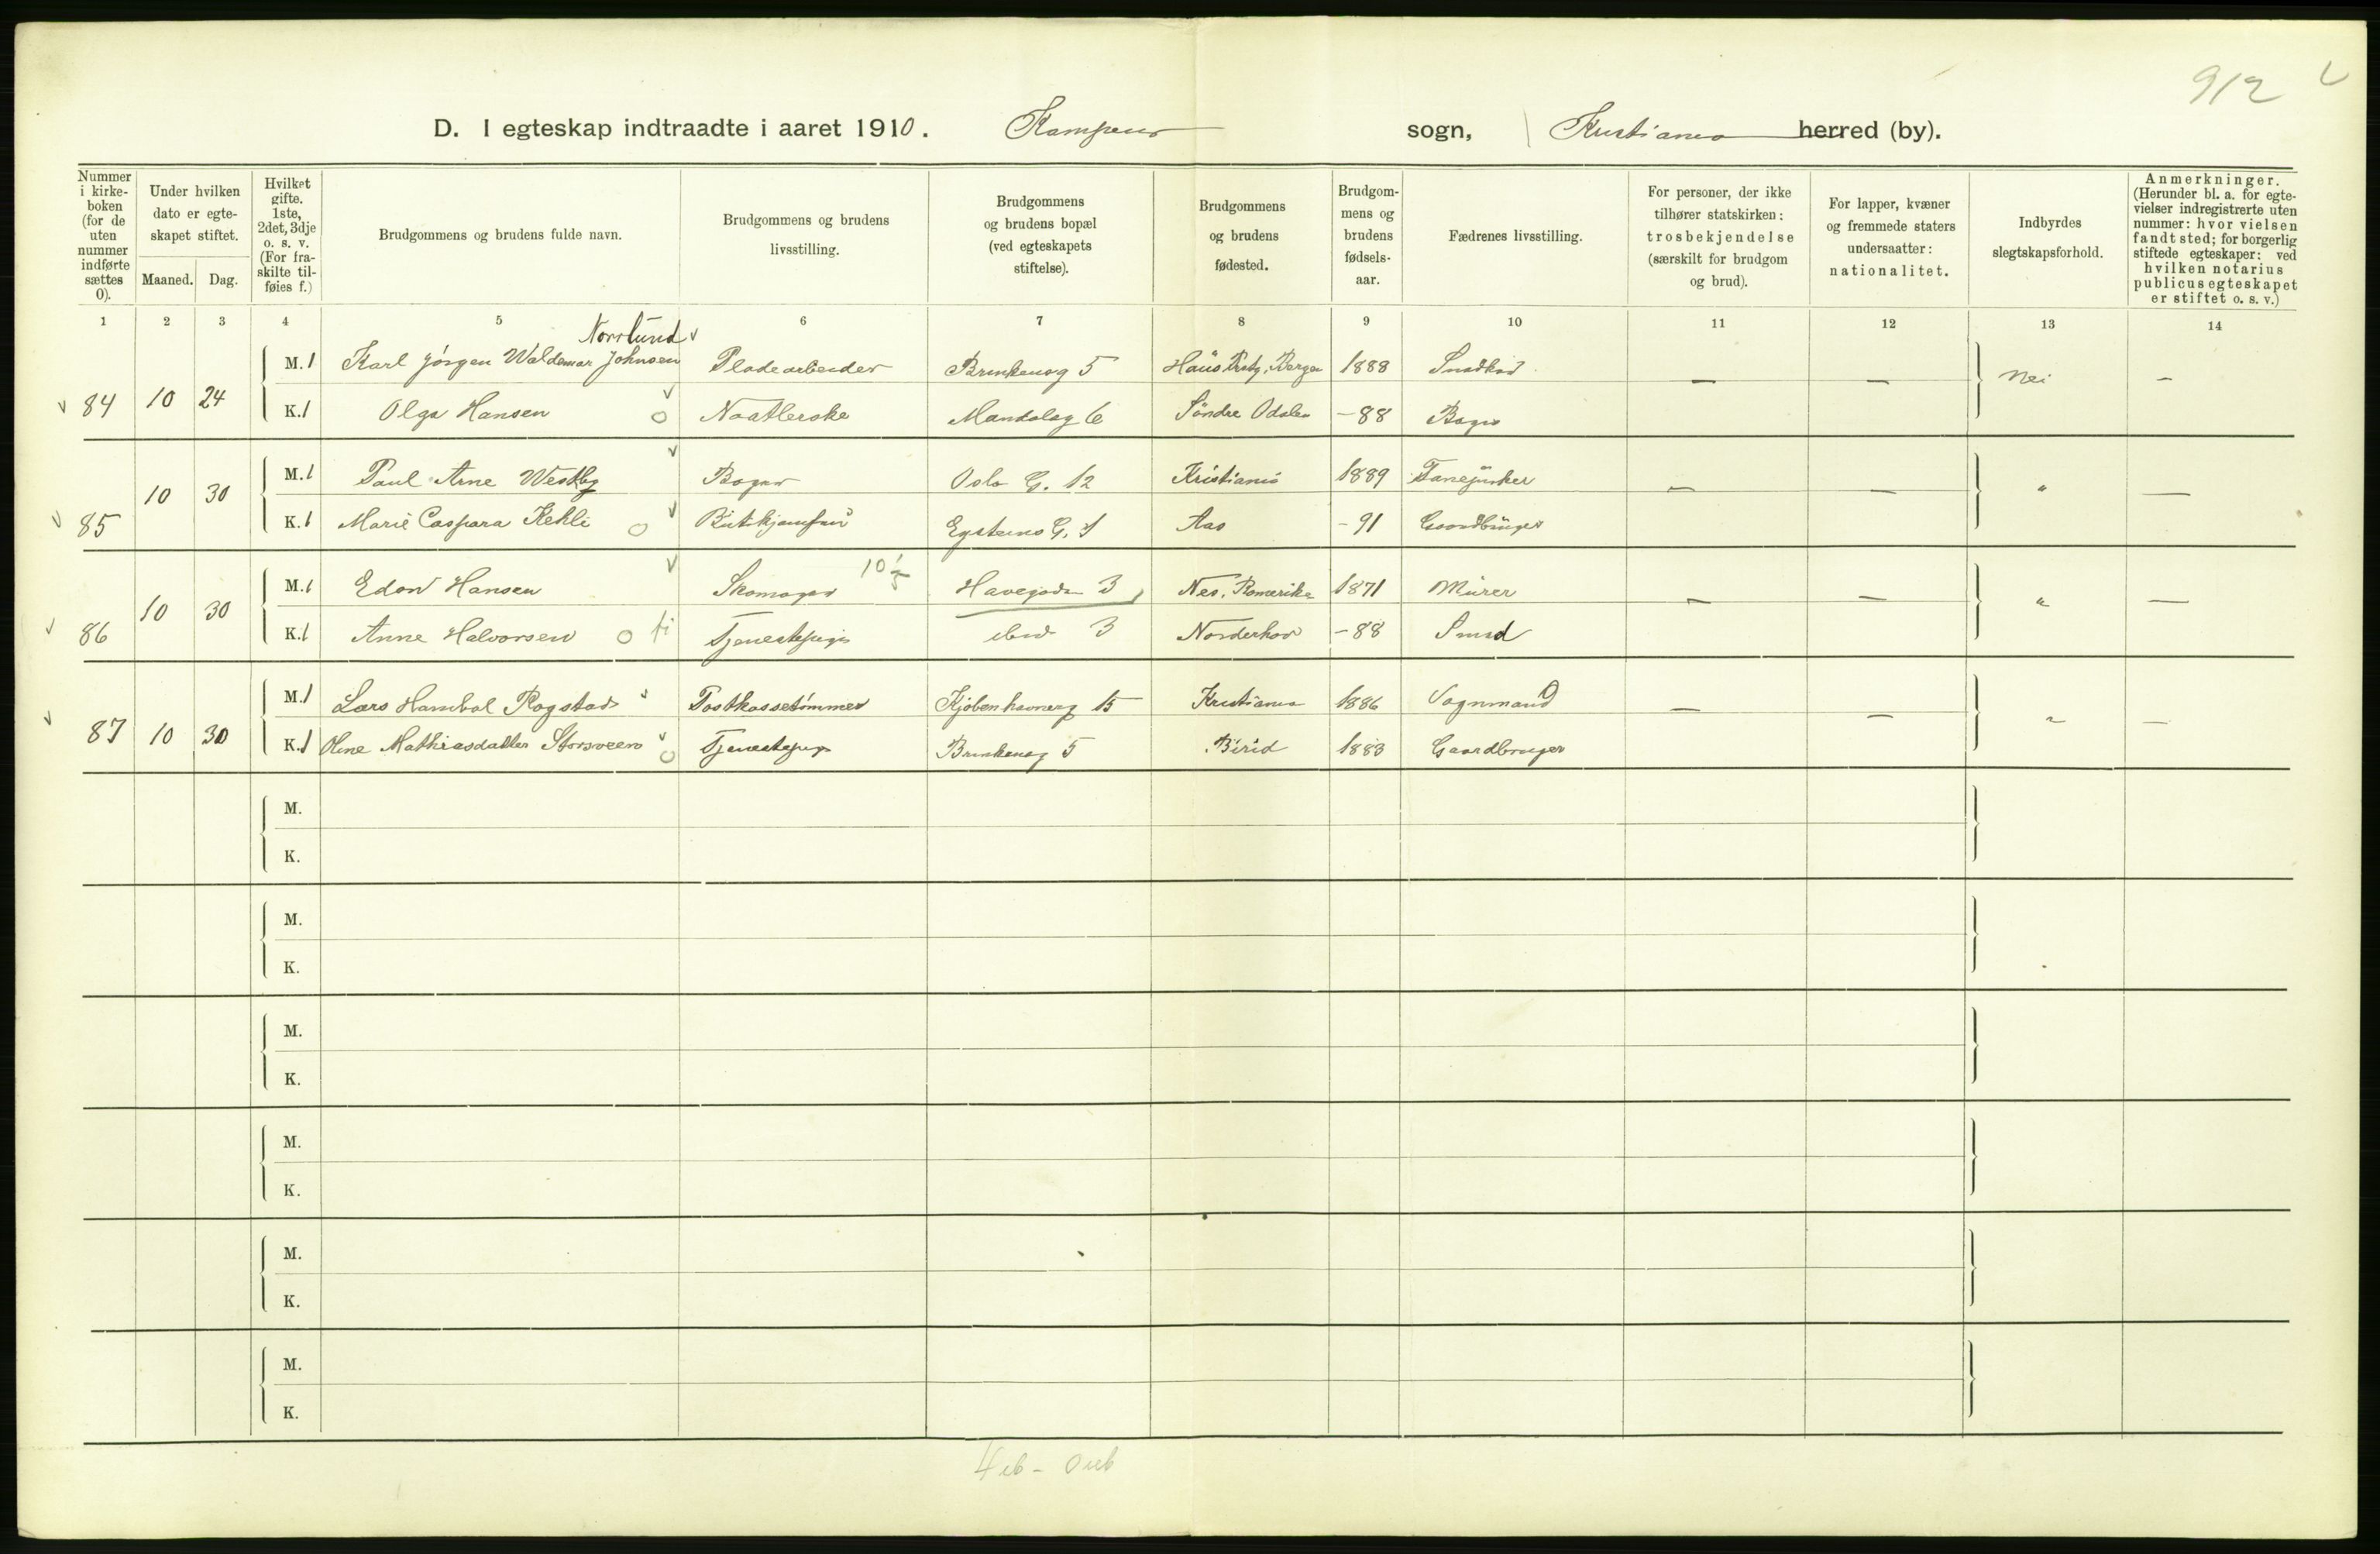 912
D. I egteskap indtraadte i aaret 1910. Kampens sogn, Kristiania herred (by).
Nummer i kirke-boken (for de uten nummer indførte sættes 0).
Under hvilken dato er egte-skapet stiftet.
Maaned. Dag.
Hvilket gifte. 1ste, 2det, 3dje o. s. v. (For fra-skilte til-føies f.)
Brudgommens og brudens fulde navn.
Brudgommens og brudens livsstilling.
Brudgommens og brudens bopæl (ved egteskapets stiftelse).
Brudgommens og brudens fødested.
Brudgom-mens og brudens fødsels-aar.
Fædrenes livsstilling.
For personer, der ikke tilhører statskirken: trosbekjendelse (særskilt for brudgom og brud).
For lapper, kvæner og fremmede staters undersaatter: nationalitet.
Indbyrdes slegtskapsforhold.
Anmerkninger. (Herunder bl. a. for egte-vielser indregistrerte uten nummer: hvor vielsen fandt sted; for borgerlig stiftede egteskaper: ved hvilken notarius publicus egteskapet er stiftet o. s. v.)
1 2 3 4 5 6 7 8 9 10 11 12 13 14
Norrlund
M. 1 Karl Jörgen Waldemar Johnsen Pladearbeider Brinkenvg 5 Haus Prstg, Bergen 1888 — — Nei —
84 10 24 K. 1 Olga Hansen o Naatlerske Mandalsg 6 Söndre Odalen -88 Bager
M. 1 Paul Arne Westby Bager Oslo G. 12 Kristiania 1889 Fanejunker — — " —
85 10 30 K. 1 Marie Caspara Kehli o Butikjomfru Eystens G. 1 Aas -91 Gaardbruger
M. 1 Edov Hansen Skomager Havegaden 3 Nes, Romerike 1871 Murer — — " —
86 10 30 K. 1 Anne Halvorsen o Tjenestepige ibid 3 Norderhov -88 Smed
M. 1 Lars Hannibal Rogstad Postkassetömmer Kjöbenhavnerg 15 Kristiania 1886 Vognmand — — " —
87 10 30 K. 1 Oline Mathiasdatter Storsveen o Tjenestepige Brinkenvg 5 Birid 1883 Gaardbruger
M.
K.
M.
K.
M.
K.
M.
K.
M.
K.
M.
K.
4 ib - 0 ub